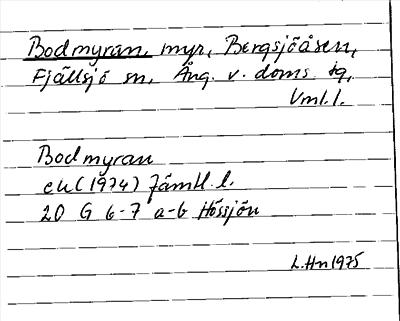 Bodmyran, myr, Bergsjöåsen,
Fjällsjö sn, Ång. v. doms. tg,
Vnl. l.
Bodmyran
ek (1974) Jämtl. l.
20 G 6-7 a-b Hössjön
L. Hn 1975